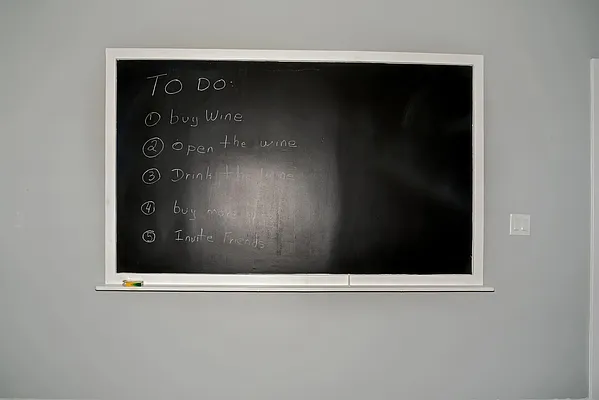 TO DO:
① buy Wine
② Open the wine
③ Drink the wine
④ buy more
⑤ Invite Friends